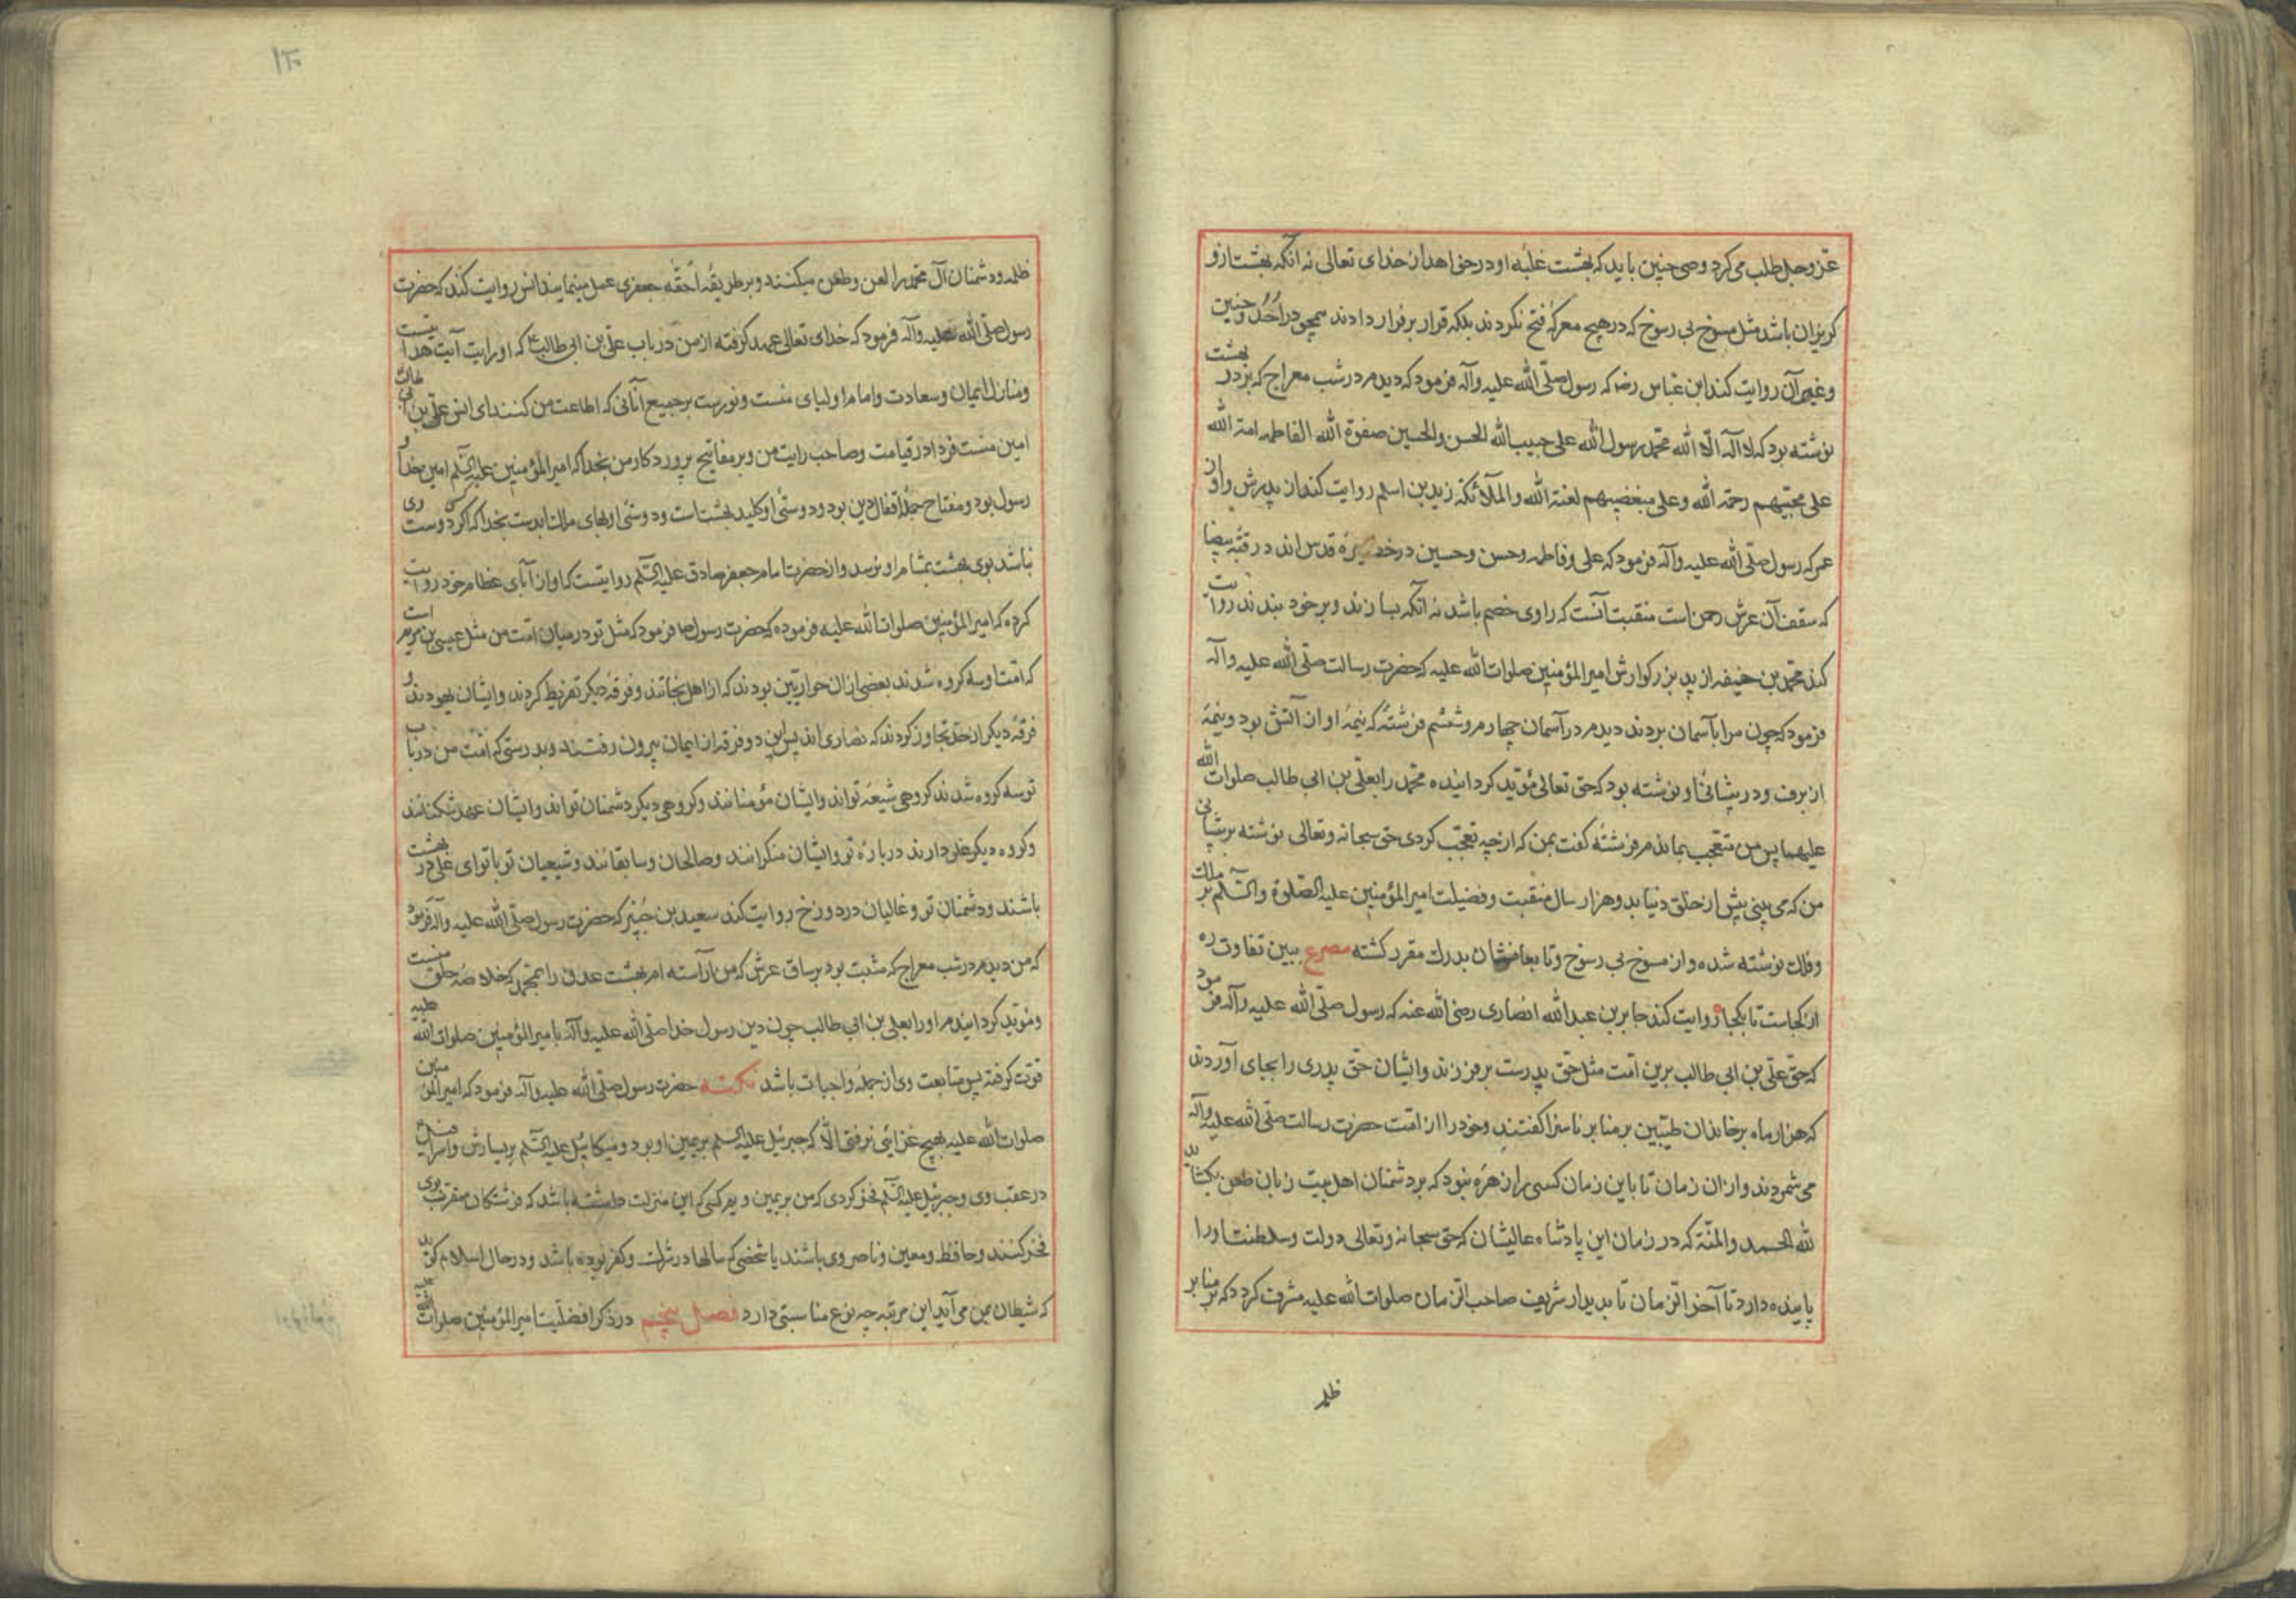 عزوجل طلب می کرد وصی چنین باید که بهشت غلبه او در حق اهدا از خدای تعالی نه آنکه بهشت ازو
کریزان باشد مثل مسوخ بی رسوخ که در هیچ معرکهٔ فتح نکردند بلکه قرار برفرار دادند همچو در اُحُد و حنین
وغیر آن روایت کند ابن عباس رضه که رسول صلّی الله علیه وآله فرمود که دیدم در شب معراج که بر در بهشت
نوشته بود که لا اله الّا الله محمّد رسول الله علی حبیب الله الحسن والحسین صفوة الله الفاطمه امة الله
علی محبّیهم رحمة الله وعلی مبغضیهم لعنة الله والملآئکة زید بن اسلم روایت کند از پدرش واو از
عمر که رسول صلّی الله علیه وآله فرمود که علی وفاطمه وحسن وحسین در حضیرهٔ قدس اند در قبّه بیضا
که سقف آن عرش رحمن است منقبت آنست که راوی خصم باشد نه آنکه بسازند وبر خود بندند روایت
کند محمّد بن حنیفه از پدر بزرکوارش امیرالمؤمنین صلوات الله علیه که حضرت رسالت صلّی الله علیه وآله
فرمود که چون مرا بآسمان بردند دیدم در آسمان چهارم وششم فرشتهٔ که نیمهٔ او از آتش بود ونیمهٔ
از برف ودر پیشانی او نوشته بود که حق تعالی مؤیّد کردانیده محمّد را بعلی بن ابی طالب صلوات الله
علیهما پس من متعجّب بماندم فرشته کفت بمن که از چه تعجّب کردی حق سبحانه وتعالی نوشته بر پیشانی
من که می بینی پیش از خلق دنیا بدو هزار سال منقبت وفضیلت امیرالمؤمنین علیه الصّلوة والسّلم بر ملک
وفلک نوشته شده واز مسوخ بی رسوخ وتابعانشان بدرک مقرر کشته مصرع ببین تفاوت ره
از کجاست تا بکجا روایت کند جابر بن عبد الله انصاری رضی الله عنه که رسول صلّی الله علیه وآله فرمود
که حق علی بن ابی طالب برین امّت مثل حق پدرست بر فرزند وایشان حق پدری را بجای آوردند
که هزار ماه بر خاندان طیّبین بر منابر ناسزا کفتند وخود را از امّت حضرت رسالت صلّی الله علیه وآله
می شمردند واز ان زمان تا باین زمان کسی را زهره نبود که بر دشمنان اهل بیت زبان طعن بکشاید
لله الحمد والمنّة که در زمان این پادشاه عالیشان که حق سبحانه وتعالی دولت وسلطنت اورا
پاینده دارد تا آخر الزمان تا بدیدار شریف صاحب الزمان صلوات الله علیه مشرف کردد که بر منابر
ظلمه
۱۲۰
ظلمه ودشمنان آل محمّد را لعن وطعن میکنند وبر طریقهٔ اَحَقّه جعفری عمل مینمایند انس روایت کند که حضرت
رسول صلّی الله علیه وآله فرمود که خدای تعالی عهد کرفته از من در باب علی بن ابی طالب ع که او رایت آیت هدایتست
ومنازل ایمان وسعادت وامام اولیای منست ونورست بر جمیع آنانی که اطاعت من کنند ای انس علی بن ابی طالب
امین منست فردا در قیامت وصاحب رایت من وبر مفاتیح پروردکار من بخدا که امیرالمؤمنین علیه السّلم امین خدا و
رسول بود ومفتاح جملهٔ اقفال دین بود ودوستی او کلید بهشتست ودوستی او بهای ملک ابدست بخدا که اکر کسی دوست وی
نباشد بوی بهشت بمشام او نرسد واز حضرت امام جعفر صادق علیه السّلم روایتست که او از آبای عظام خود روایت
کرده که امیرالمؤمنین صلوات الله علیه فرموده که حضرت رسول ص فرمود که مثل تو در میان امّت من مثل عیسی بن مریم است
که امّت او سه کروه شدند بعضی از ان حواریّین بودند که از اهل نجاتند وفرقهٔ دیکر تفریط کردند وایشان یهودند و
فرقهٔ دیکر از حدّ تجاوز کردند که نصاری اند پس این دو فرقه از ایمان بیرون رفتند وبدرستی که امّت من در باب
تو سه کروه شدند کروهی شیعهٔ تواند وایشان مؤمنانند وکروهی دیکر دشمنان تواند وایشان عهد شکنانند
وکروه دیکر غلو دارند در بارهٔ تو وایشان منکرانند وصالحان وسابقانند وشیعیان تو با تو ای علی در بهشت
باشند ودشمنان تو وغالیان در دوزخ روایت کند سعید بن جُبَیْر که حضرت رسول صلّی الله علیه وآله فرمود
که من دیدم در شب معراج که مثبت بود بر ساق عرش که من آراسته ام بهشت عدن را بمحمّد که خلاصهٔ خلق منست
ومؤیّد کردانیدم اورا بعلی بن ابی طالب چون دین رسول خدا صلّی الله علیه وآله بامیرالمؤمنین صلوات الله علیه
قوّت کرفته پس متابعت وی از جملهٔ واجبات باشد نکته حضرت رسول صلّی الله علیه وآله فرمود که امیرالمؤمنین
صلوات الله علیه بهیچ غزائی نرفتی الّا که جبرئیل علیه السلم بریمین او بود ومیکائیل علیه السّلم بر یسارش واسرافیل
در عقب وی وجبرئیل علیه السّلم فخر کردی که من بر یمین ویم کسی که این منزلت داشته باشد که فرشتکان مقرب بوی
فخر کنند وحافظ ومعین وناصر وی باشند با شخصی که سالها در شرک وکفر بوده باشد ودر حال اسلام کوید
که شیطان بمن می آید این مرتبه چه نوع مناسبتی دارد فصل پنجم در ذکر افضلیّت امیرالمؤمنین صلوات الله علیه